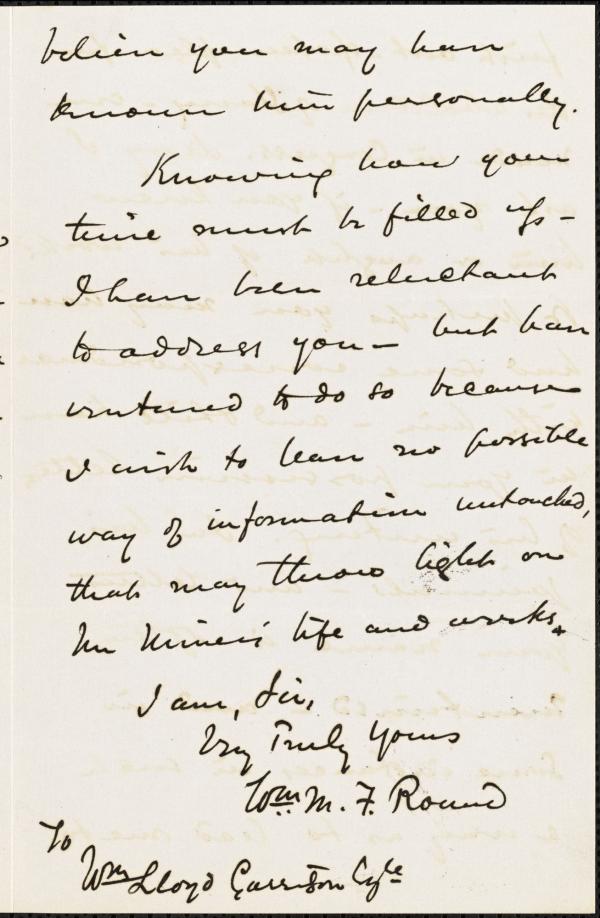 believe you may have
known him personally.
Knowing how your
time must be filled up –
I have been reluctant
to address you – but have
ventured to do so because
I wish to leave no possible
way of information untouched,
that may throw light on
Mr Miner's life and works.
I am, Sir,
Very Truly Yours
Wm. M. F. Round
To
Wm Lloyd Garrison